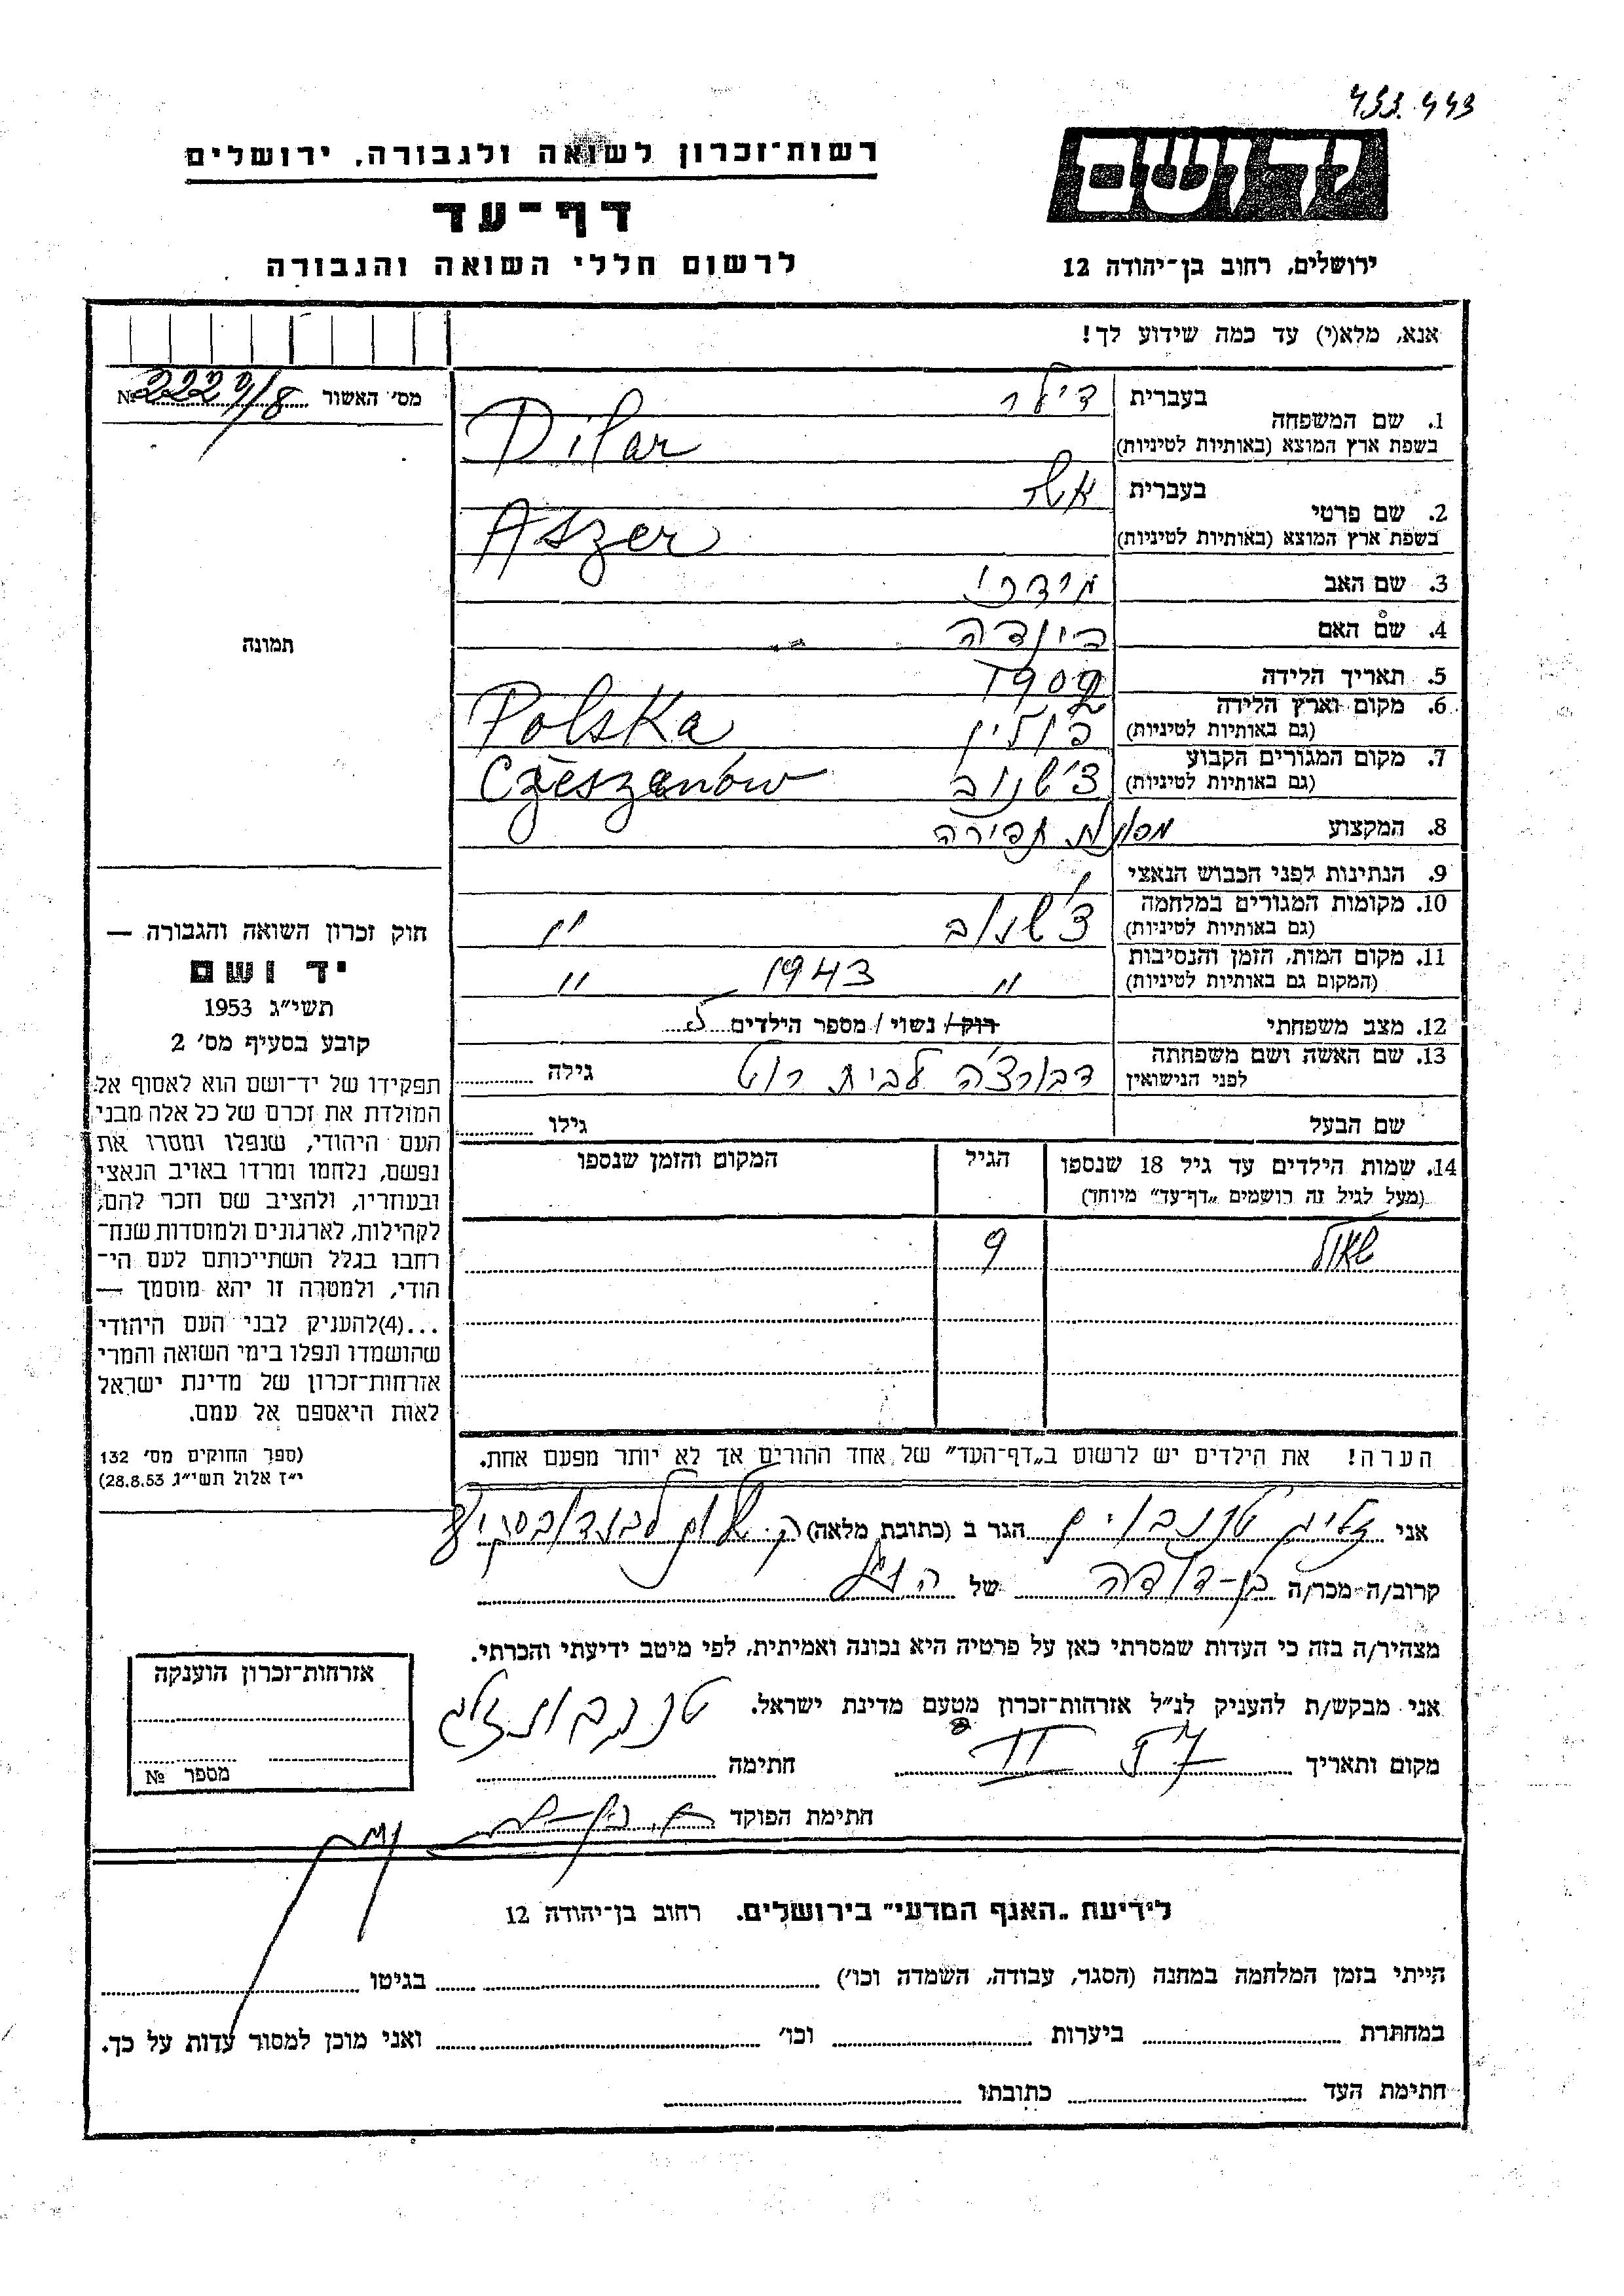 453.443
יד ושם
ירושלים, רחוב בן־יהודה 12
רשות־זכרון לשואה ולגבורה, ירושלים
דף־עד
לרשום חללי השואה והגבורה
אנא, מלא(י) עד כמה שידוע לך!
מס׳ האשור № 2229/8
1. שם המשפחה בעברית דילר
בשפת ארץ המוצא (באותיות לטיניות) Dilar
2. שם פרטי בעברית אשר
בשפת ארץ המוצא (באותיות לטיניות) Aszer
3. שם האב מרדכי
4. שם האם בינדה
5. תאריך הלידה 1902
6. מקום וארץ הלידה
(גם באותיות לטיניות) פולין Polska
7. מקום המגורים הקבוע
(גם באותיות לטיניות) צ׳שנוב Czeszanów
8. המקצוע תפירה
9. הנתינות לפני הכבוש הנאצי
10. מקומות המגורים במלחמה
(גם באותיות לטיניות) צ׳שנוב ״
11. מקום המות, הזמן והנסיבות
(המקום גם באותיות לטיניות) ״ 1943 ״
12. מצב משפחתי רוק/ נשוי/ מספר הילדים
13. שם האשה ושם משפחתה
לפני הנישואין דבורצ׳ה לבית רוט גילה
שם הבעל גילו
14. שמות הילדים עד גיל 18 שנספו הגיל המקום והזמן שנספו
(מעל לגיל זה רושמים „דף־עד״ מיוחד)
שאול 9
הערה! את הילדים יש לרשום ב„דף־העד״ של אחד ההורים אך לא יותר מפעם אחת.
תמונה
חוק זכרון השואה והגבורה —
יד ושם
תשי״ג 1953
קובע בסעיף מס׳ 2
תפקידו של יד־ושם הוא לאסוף אל
המולדת את זכרם של כל אלה מבני
העם היהודי, שנפלו ומסרו את
נפשם, נלחמו ומרדו באויב הנאצי
ובעוזריו, ולהציב שם וזכר להם,
לקהילות, לארגונים ולמוסדות שנח־
רבו בגלל השתייכותם לעם הי־
הודי, ולמטרה זו יהא מוסמך —
...(4)להעניק לבני העם היהודי
שהושמדו ונפלו בימי השואה והמרי
אזרחות־זכרון של מדינת ישראל
לאות היאספם אל עמם.
(ספר החוקים מס׳ 132
י״ז אלול תשי״ג 28.8.53)
אני זליג טננבוים הגר ב (כתובת מלאה)
קרוב/ה־מכר/ה בן-דודה של הנ״ל
מצהיר/ה בזה כי העדות שמסרתי כאן על פרטיה היא נכונה ואמיתית, לפי מיטב ידיעתי והכרתי.
אני מבקש/ת להעניק לנ״ל אזרחות־זכרון מטעם מדינת ישראל.
מקום ותאריך חתימה
חתימת הפוקד
אזרחות־זכרון הוענקה
מספר №
לידיעת „האגף המדעי״ בירושלים. רחוב בן־יהודה 12
הייתי בזמן המלחמה במחנה (הסגר, עבודה, השמדה וכו׳) בגיטו
במחתרת ביערות וכו׳ ואני מוכן למסור עדות על כך.
חתימת העד כתובתו